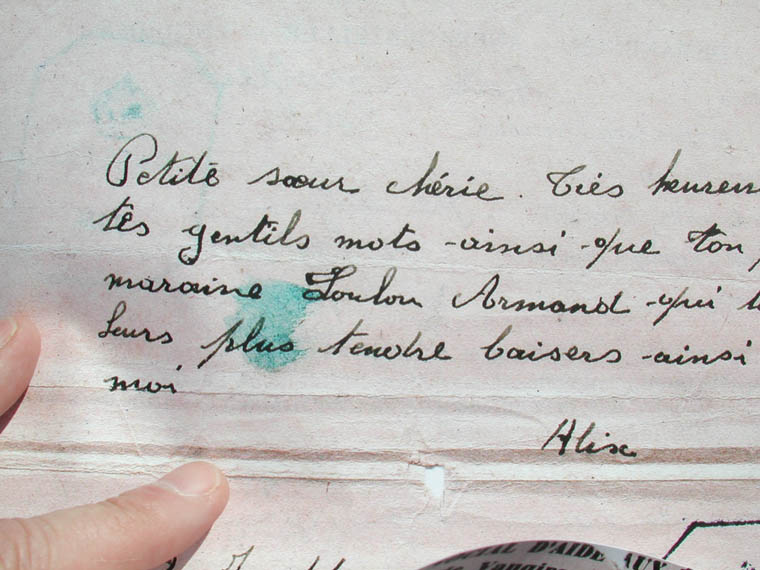 Petite sœur chérie. Très heureu
tes gentils mots ainsi que ton
maraine Loulou Armand qui
leurs plus tendre baisers ainsi
moi
Alix
D'AIDE AUX